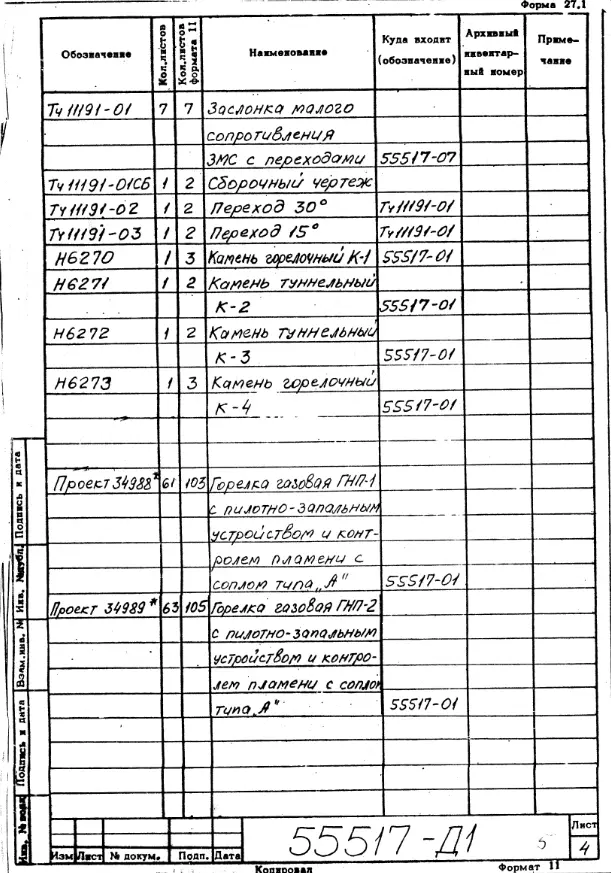 Форма 27.1
Обозначение Кол.листов Кол.листов формата 11 Наименование Куда входит (обозначение) Архивный инвентарный номер Примечание
ТЧ11191-01 7 7 Заслонка малого
сопротивления
ЗМС с переходами 55517-07
ТЧ11191-01СБ 1 2 Сборочный чертеж
ТЧ11191-02 1 2 Переход 30° ТЧ11191-01
ТЧ11191-03 1 2 Переход 15° ТЧ11191-01
Н6270 1 3 Камень горелочный К-1 55517-01
Н6271 1 2 Камень туннельный
К-2 55517-01
Н6272 1 2 Камень туннельный
К-3 55517-01
Н6273 1 3 Камень горелочный
К-4 55517-01
Проект 34988* 61 103 Горелка газовая ГНП-1
с пилотно-запальным
устройством и конт-
ролем пламени с
соплом типа „А" 55517-01
Проект 34989* 63 105 Горелка газовая ГНП-2
с пилотно-запальным
устройством и контро-
лем пламени с соплом
типа „А" 55517-01
Подпись и дата
Инв. № дубл.
Взам.инв. №
Подпись и дата
Инв. № подл.
Изм Лист № докум. Подп. Дата
55517-Д1 5
Лист
4
Копировал Формат 11